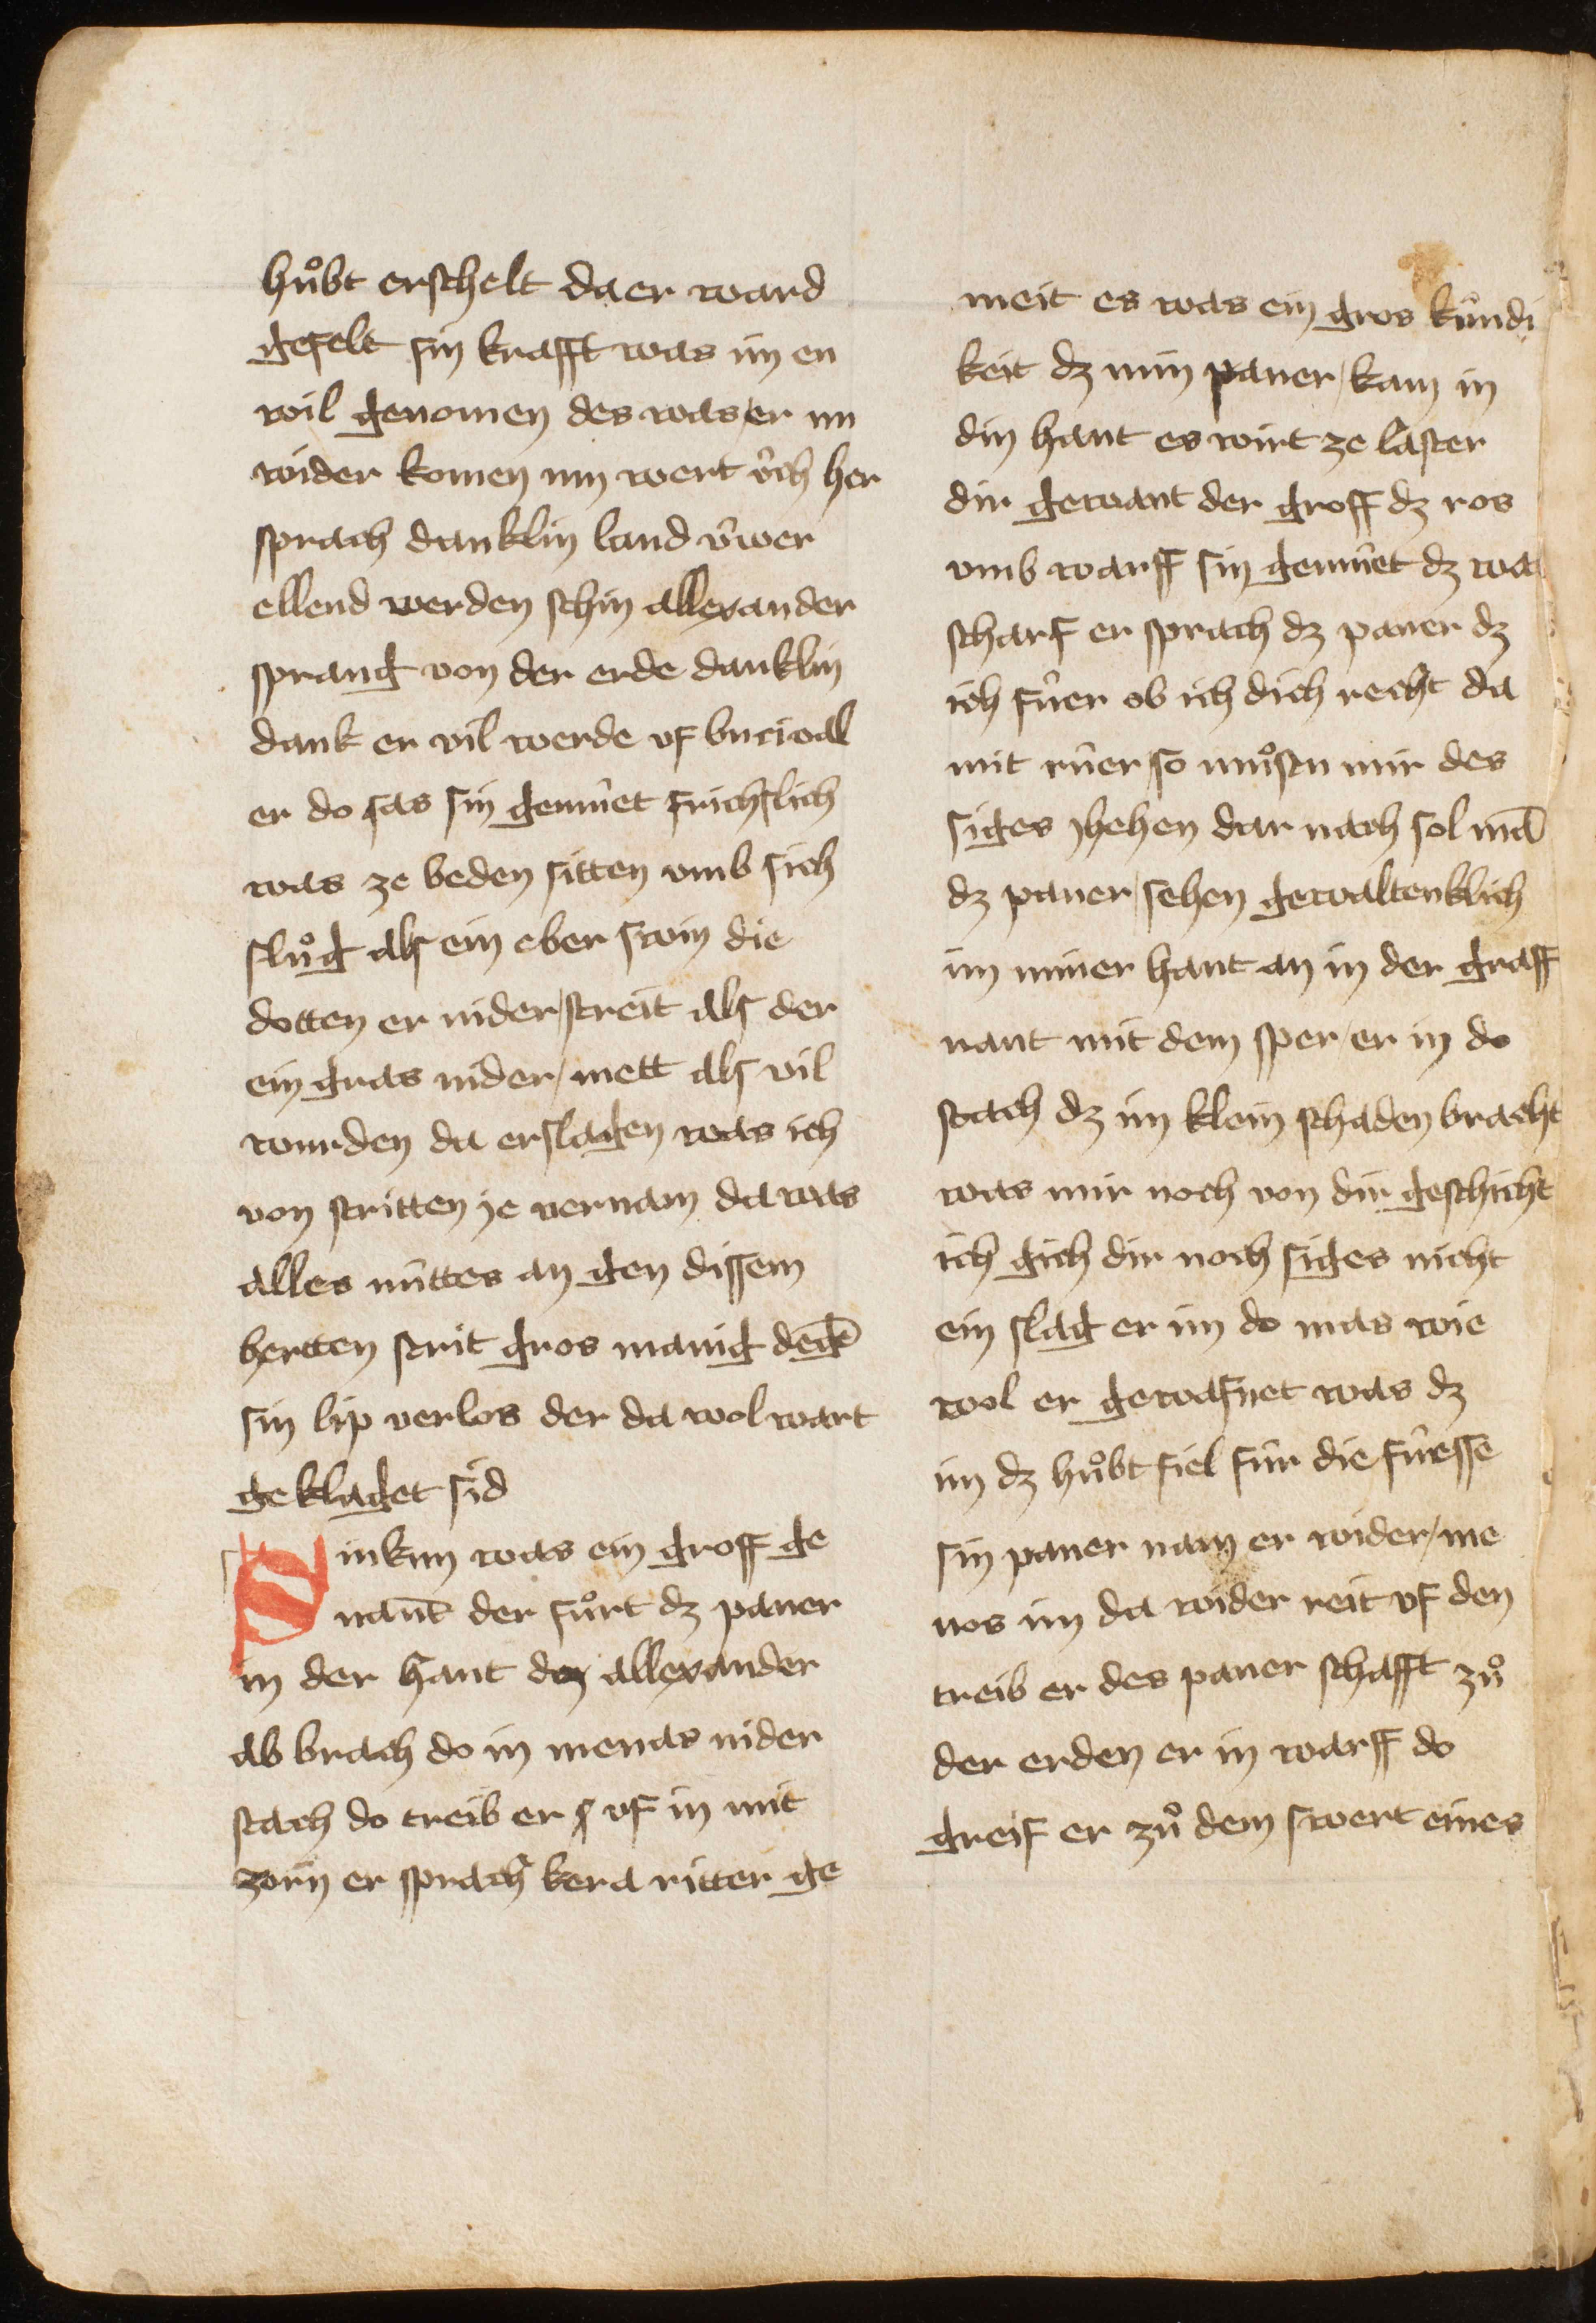 hůbt erschelt da er ward
gefelt sin krafft was im en
wil genomen des was er im
wider komen nun wert v̂ch her
sprach danklin land v̂wer
ellend werden schin allexander
sprang von der erde danklin
dank er vil werde vf bucival
er do sas sin gemu̍et frichslich
was ze beden sitten vmb sich
slůg als ein eber swin die
dotten er nider streit als der
ein gras nider mett als vil
wurden da erslagen was ich
von stritten je vernam da was
alles nu̍ttes an gen dissem
hertten strit gros manig degē
sin lip verlos der da wol wart
geklaget sid
Sinkun was ein groff ge
nant der fůrt dz paner
in der hant dez allexander
ab brach do in menas nider
stach do treib er vf in mit
zorn er sprach kera ritter ge
meit es was ein gros ku̍ndi
keit dz min paner kam in
din hant es wirt ze laster
dir gewant der groff dz ros
vmb warff sin gemu̍et dz wa
scharf er sprach dz paner dz
ich fu̍er ob ich dich recht da
mit ru̍er so můsen mir des
siges jhehen dar nach sol mā
dz paner sehen gewaltenklich
in miner hant an in der graff
nant mit dem sper er in do
stach dz im klein schaden bracht
was mir noch von dir geschicht
ich gich dir noch siges nicht
ein slag er im do mas wie
wol er gewafnet was dz
im dz hůbt fiel fu̍r die fu̍esse
sin paner nam er wider me
nos im da wider reit vf den
treib er des paner schafft zů
der erden er in warff do
greif er zů dem swert eines